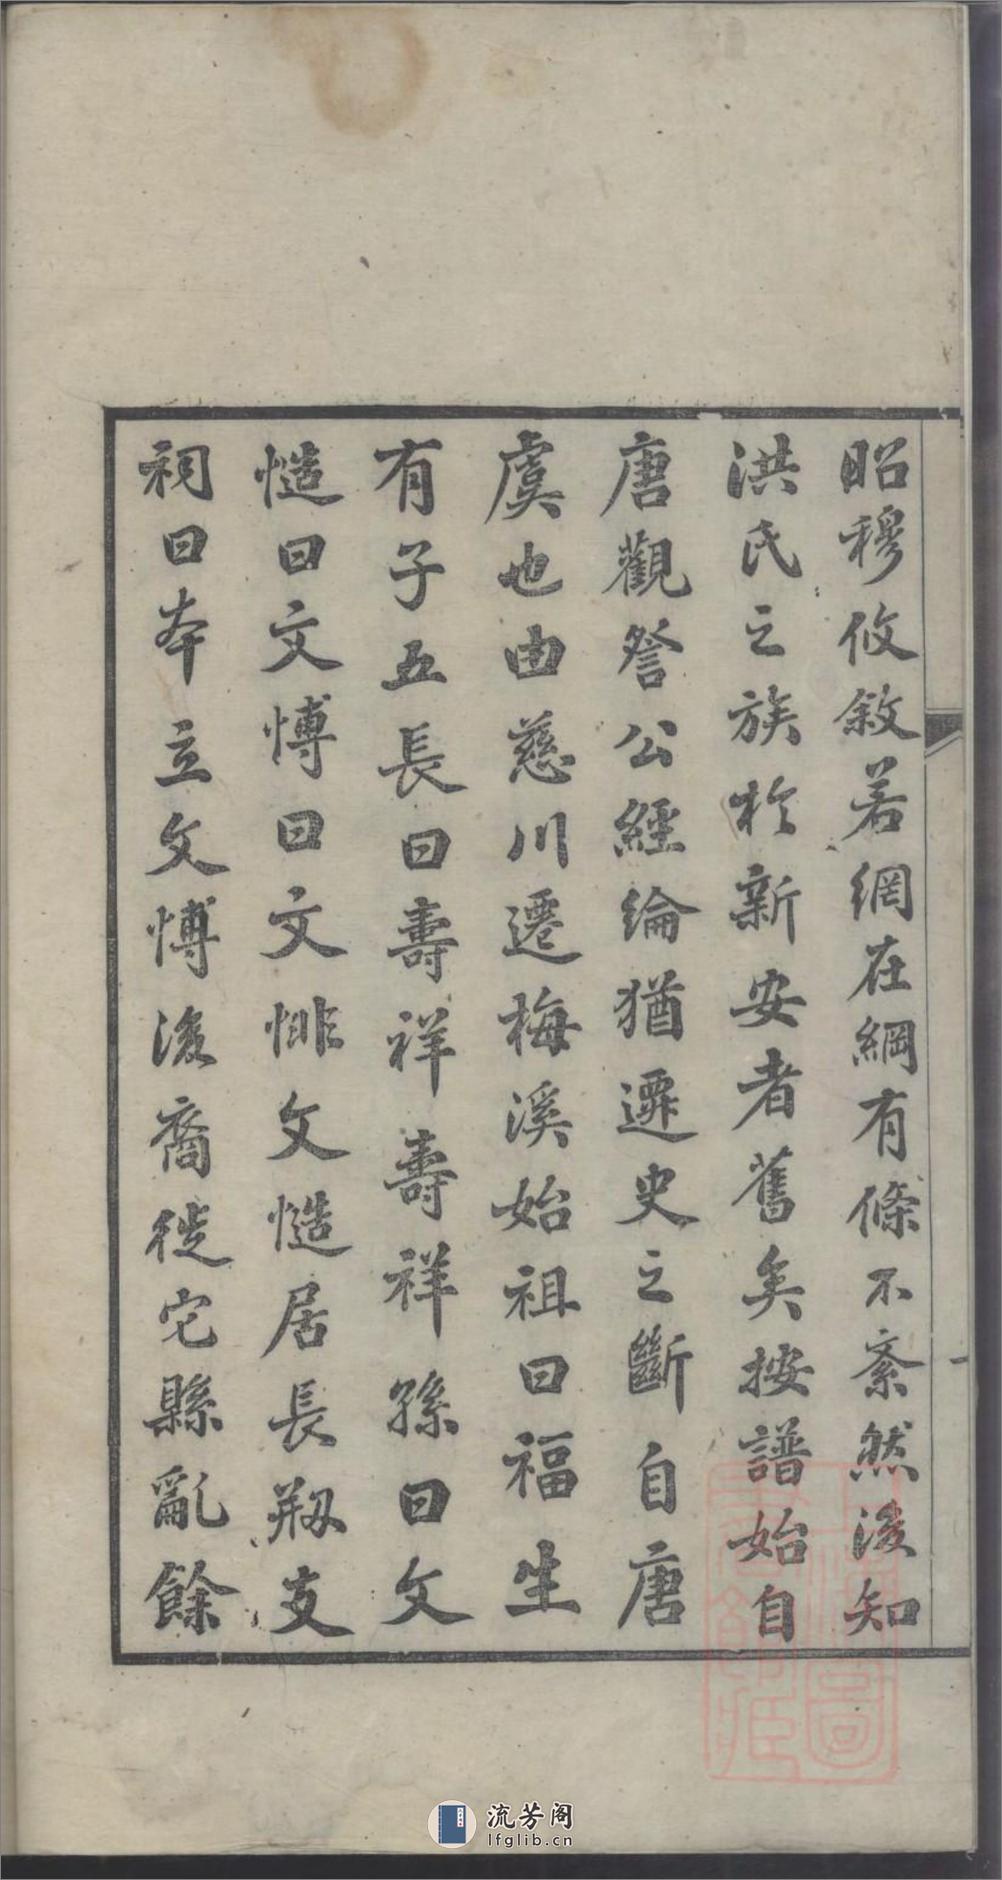 昭穆攸敘若網在綱有條不紊然後知
洪氏之族於新安者舊矣按譜始自
唐觀詧公經綸猶遷史之斷自唐
虞也由慈川遷梅溪始祖曰福生
有子五長曰壽祥壽祥孫曰文
慥曰文博曰文悱文慥居長剏支
祠曰本立文博後裔徙它縣亂餘
流芳阁
lfglib.cn